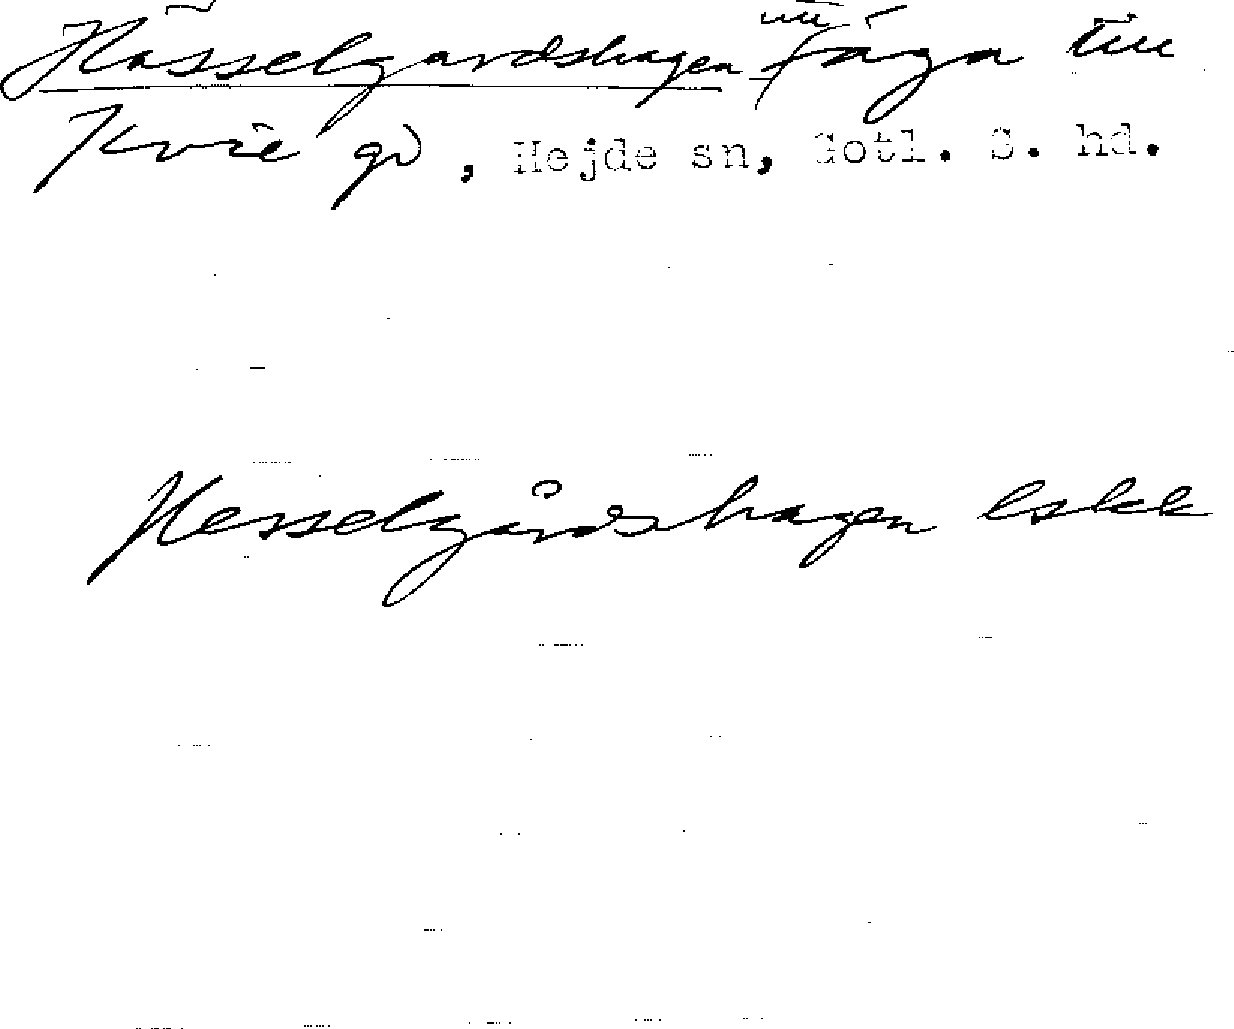 Hässelgardshagen äga till
Kvie gd, Hejde sn, Gotl. S. hd.
Hesselgårdshagen eskk